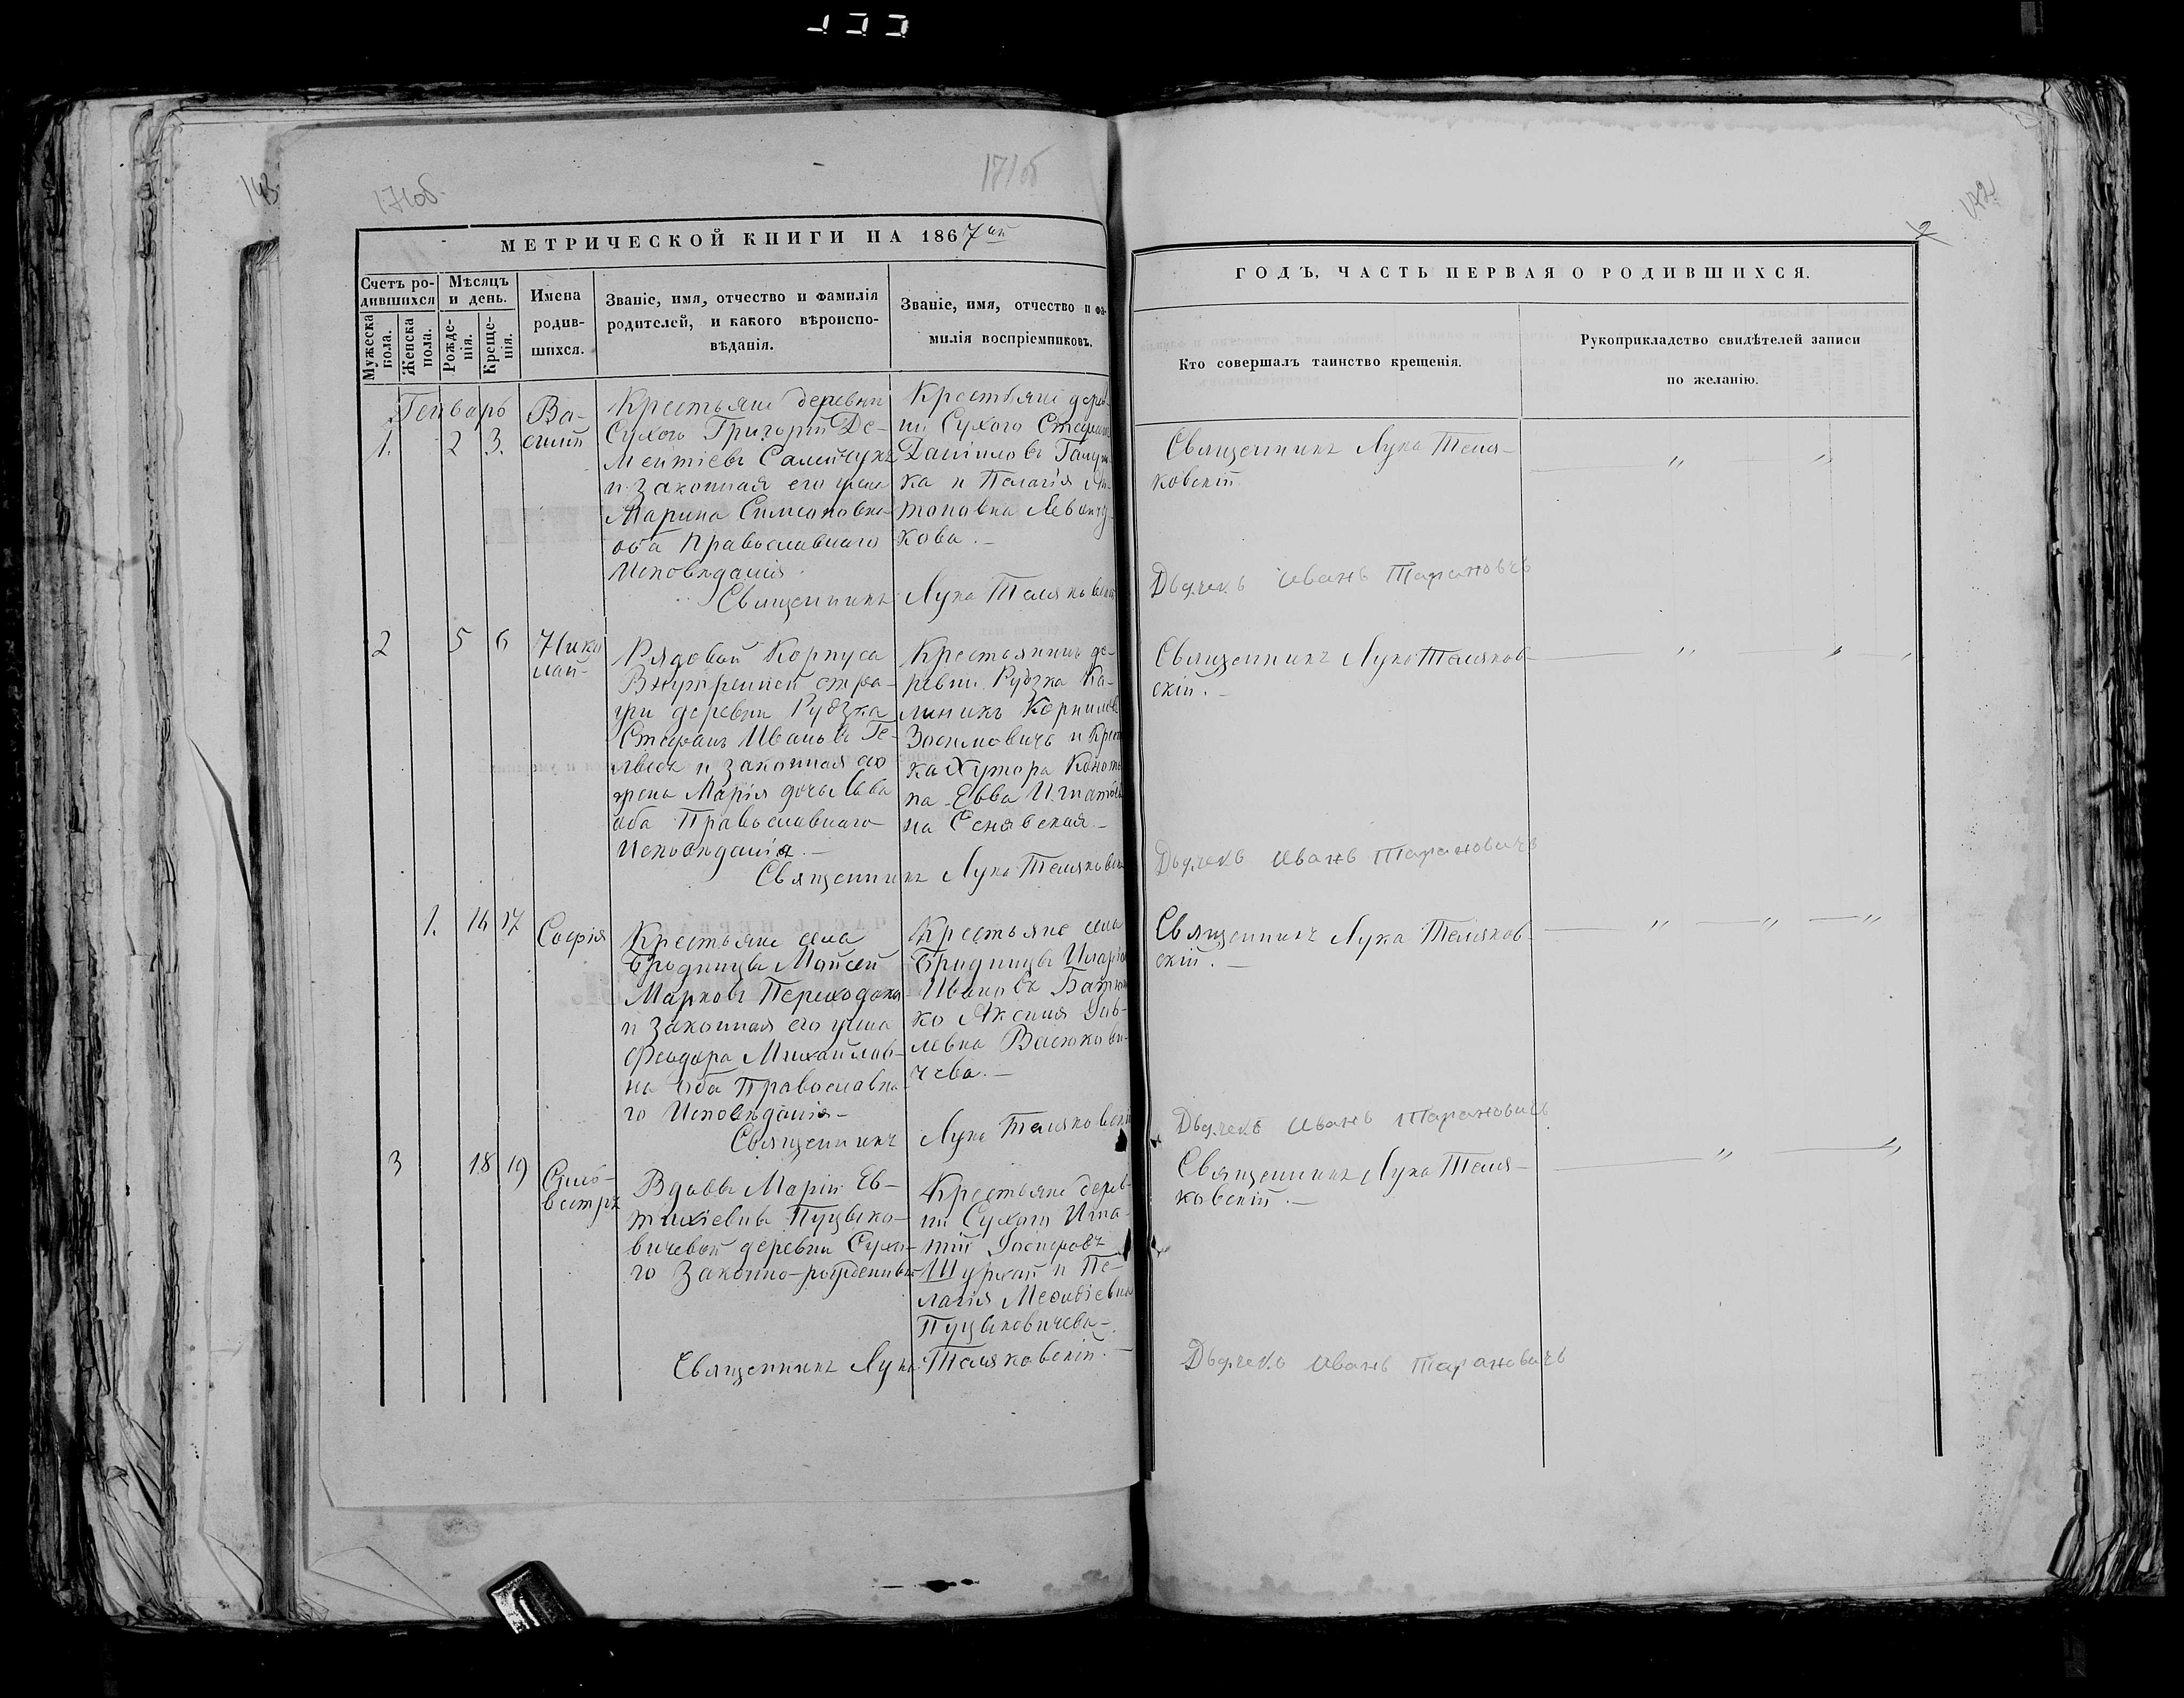 171об.
171об
МЕТРИЧЕСКОЙ КНИГИ НА 1867ый
Счетъ ро-
дившихся
Мѣсяцъ
и день.
Мужеска
пола.
Женска
пола.
Рожде-
нія.
Креще-
нія.
Имена
родив-
шихся.
Званіе, имя, отчество и фамилія
родителей, и какого вѣроиспо-
вѣданія.
Званіе, имя, отчество и фа-
милія воспріемниковъ.
Генварь
1. 2 3.
Ва-
силій
Крестьяне деревни
Сухого Григорій Де-
ментіевъ
и законная его жена
Марина Симоновна
оба Православнаго
Исповѣданія.
Крестьяне дерев-
ни Сухого Стефанъ
Даніиловъ
ка и Пелагія Ан-
тоновна
кова.
Священникъ Лука Теляковскій
2 5 6
Нико
лай
Рядовый Корпуса
Внутренней стра-
жи деревни Рудзка
Стефанъ Ивановъ
и законная его
жена Марія дочь Савы
оба Православнаго
Исповѣданія.
Крестьянинъ де-
ревни Рудзка Ка-
линикъ Корниловъ
Зосимовичъ и Крест
ка Хутора
на Евва Игнатьев
на Сенявская.
Священникъ Лука Теляковскій
1. 16 17
Софія
Крестьяне села
Бродницы Моисей
Марковъ Переходько
и законная его жена
Феодора Михайлов-
на оба Православна-
го Исповѣданія
Крестьяне села
Бродницы Иларіо
Ивановъ
ко Аксиня Пав-
левна Васюкови-
чева.
Священникъ Лука Теляковскій
3 18 19
Силь-
вестръ
Вдовы Маріи Ев-
тихіевны Пуцыко-
вичевой деревни Сухо-
го Законно-рожденный
Крестьяне дерев-
ни Сухого Игна-
тій
и Пе-
лагія
Пуцыковичева.
Священникъ Лука Теляковскій.
ГОДЪ, ЧАСТЬ ПЕРВАЯ О РОДИВШИХСЯ.
Кто совершалъ таинство крещенія.
Рукоприкладство свидѣтелей записи
по желанію.
Священникъ Лука Теля-
ковскій
Дьячекъ Иванъ Тарановичъ
Священникъ Лука Теляков-
скій.
Дьячекъ Иванъ Тарановичъ
Священникъ Лука Теляков-
скій.
Дьячекъ Иванъ Тарановичъ
Священникъ Лука Теля-
ковскій.
Дьячекъ Иванъ Тарановичъ